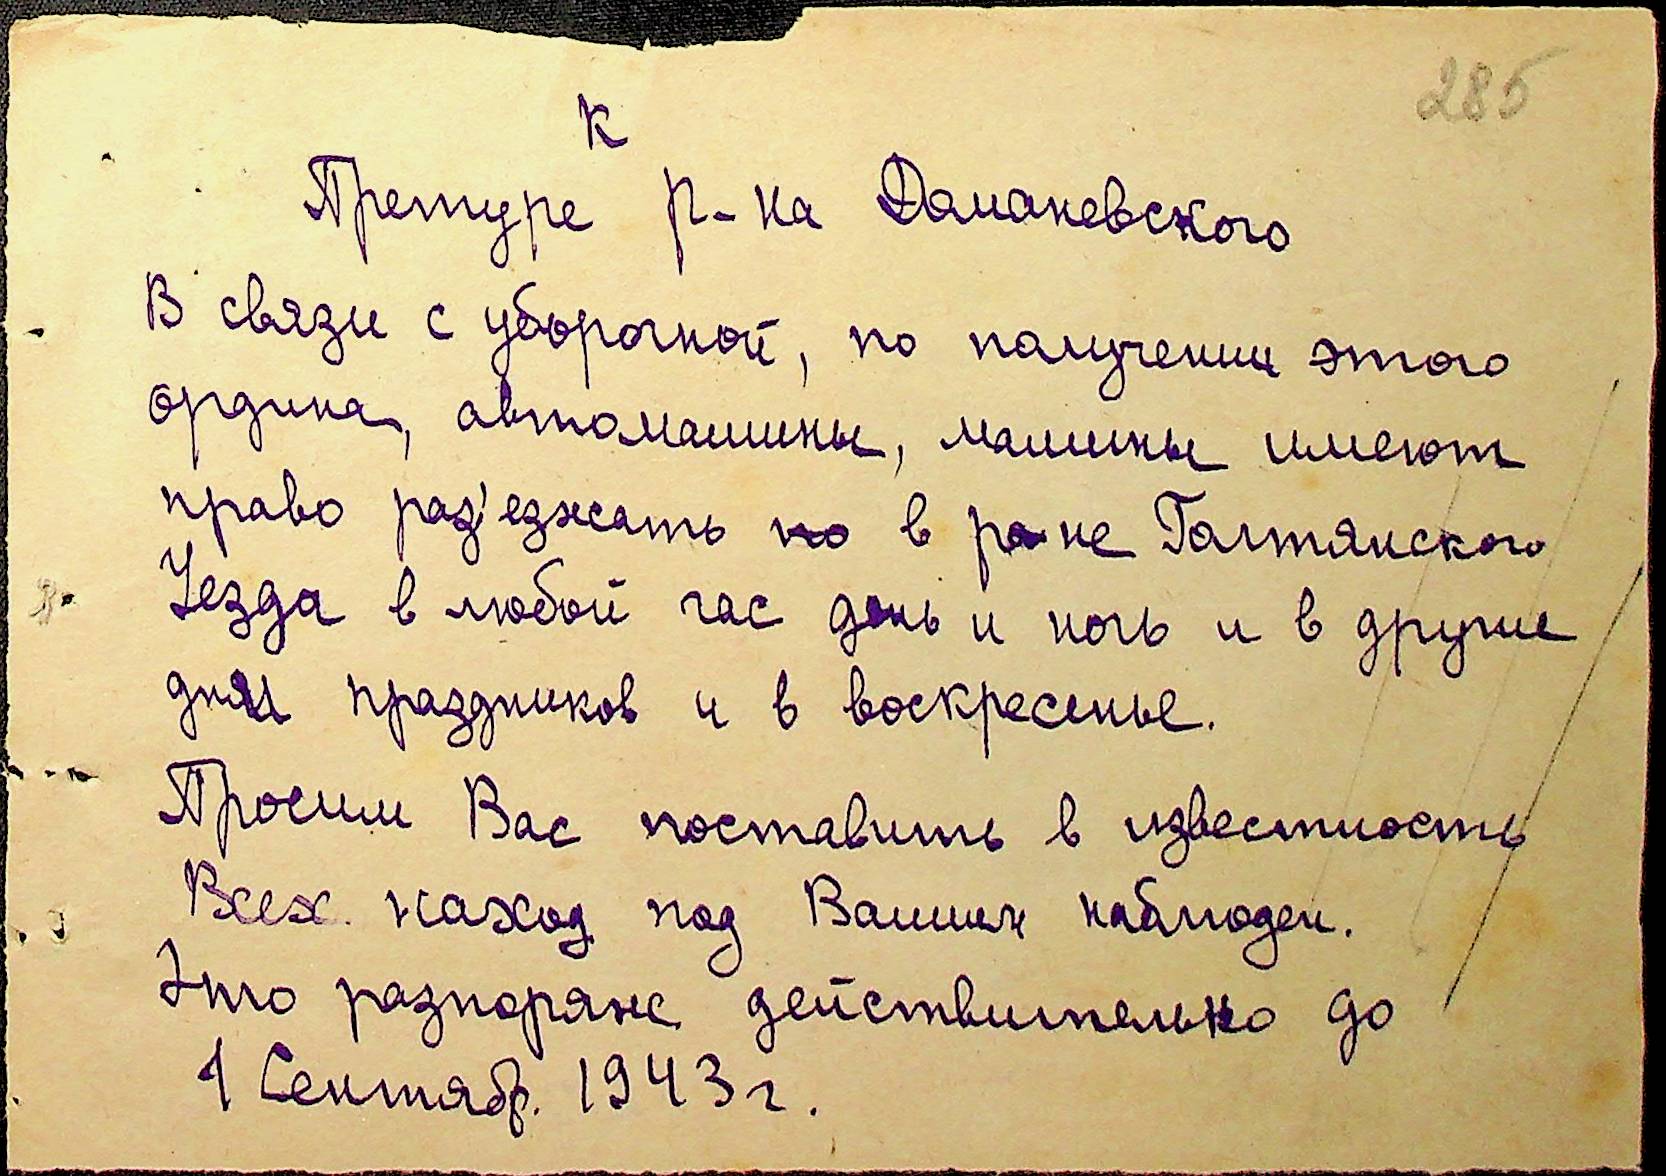 285
К
Претуре р-на Доманевского
В связи с уборочной, по получении этого
ордина, автомашины, машины имеют
право раз'езжать по в р-не Голтянского
Уезда в любой час день и ночь и в другие
дни праздников и в воскресенье.
Просим Вас поставить в известность
Всех наход под Вашим наблюден.
Это разпоряж действительно до
1 Сентябр. 1943 г.